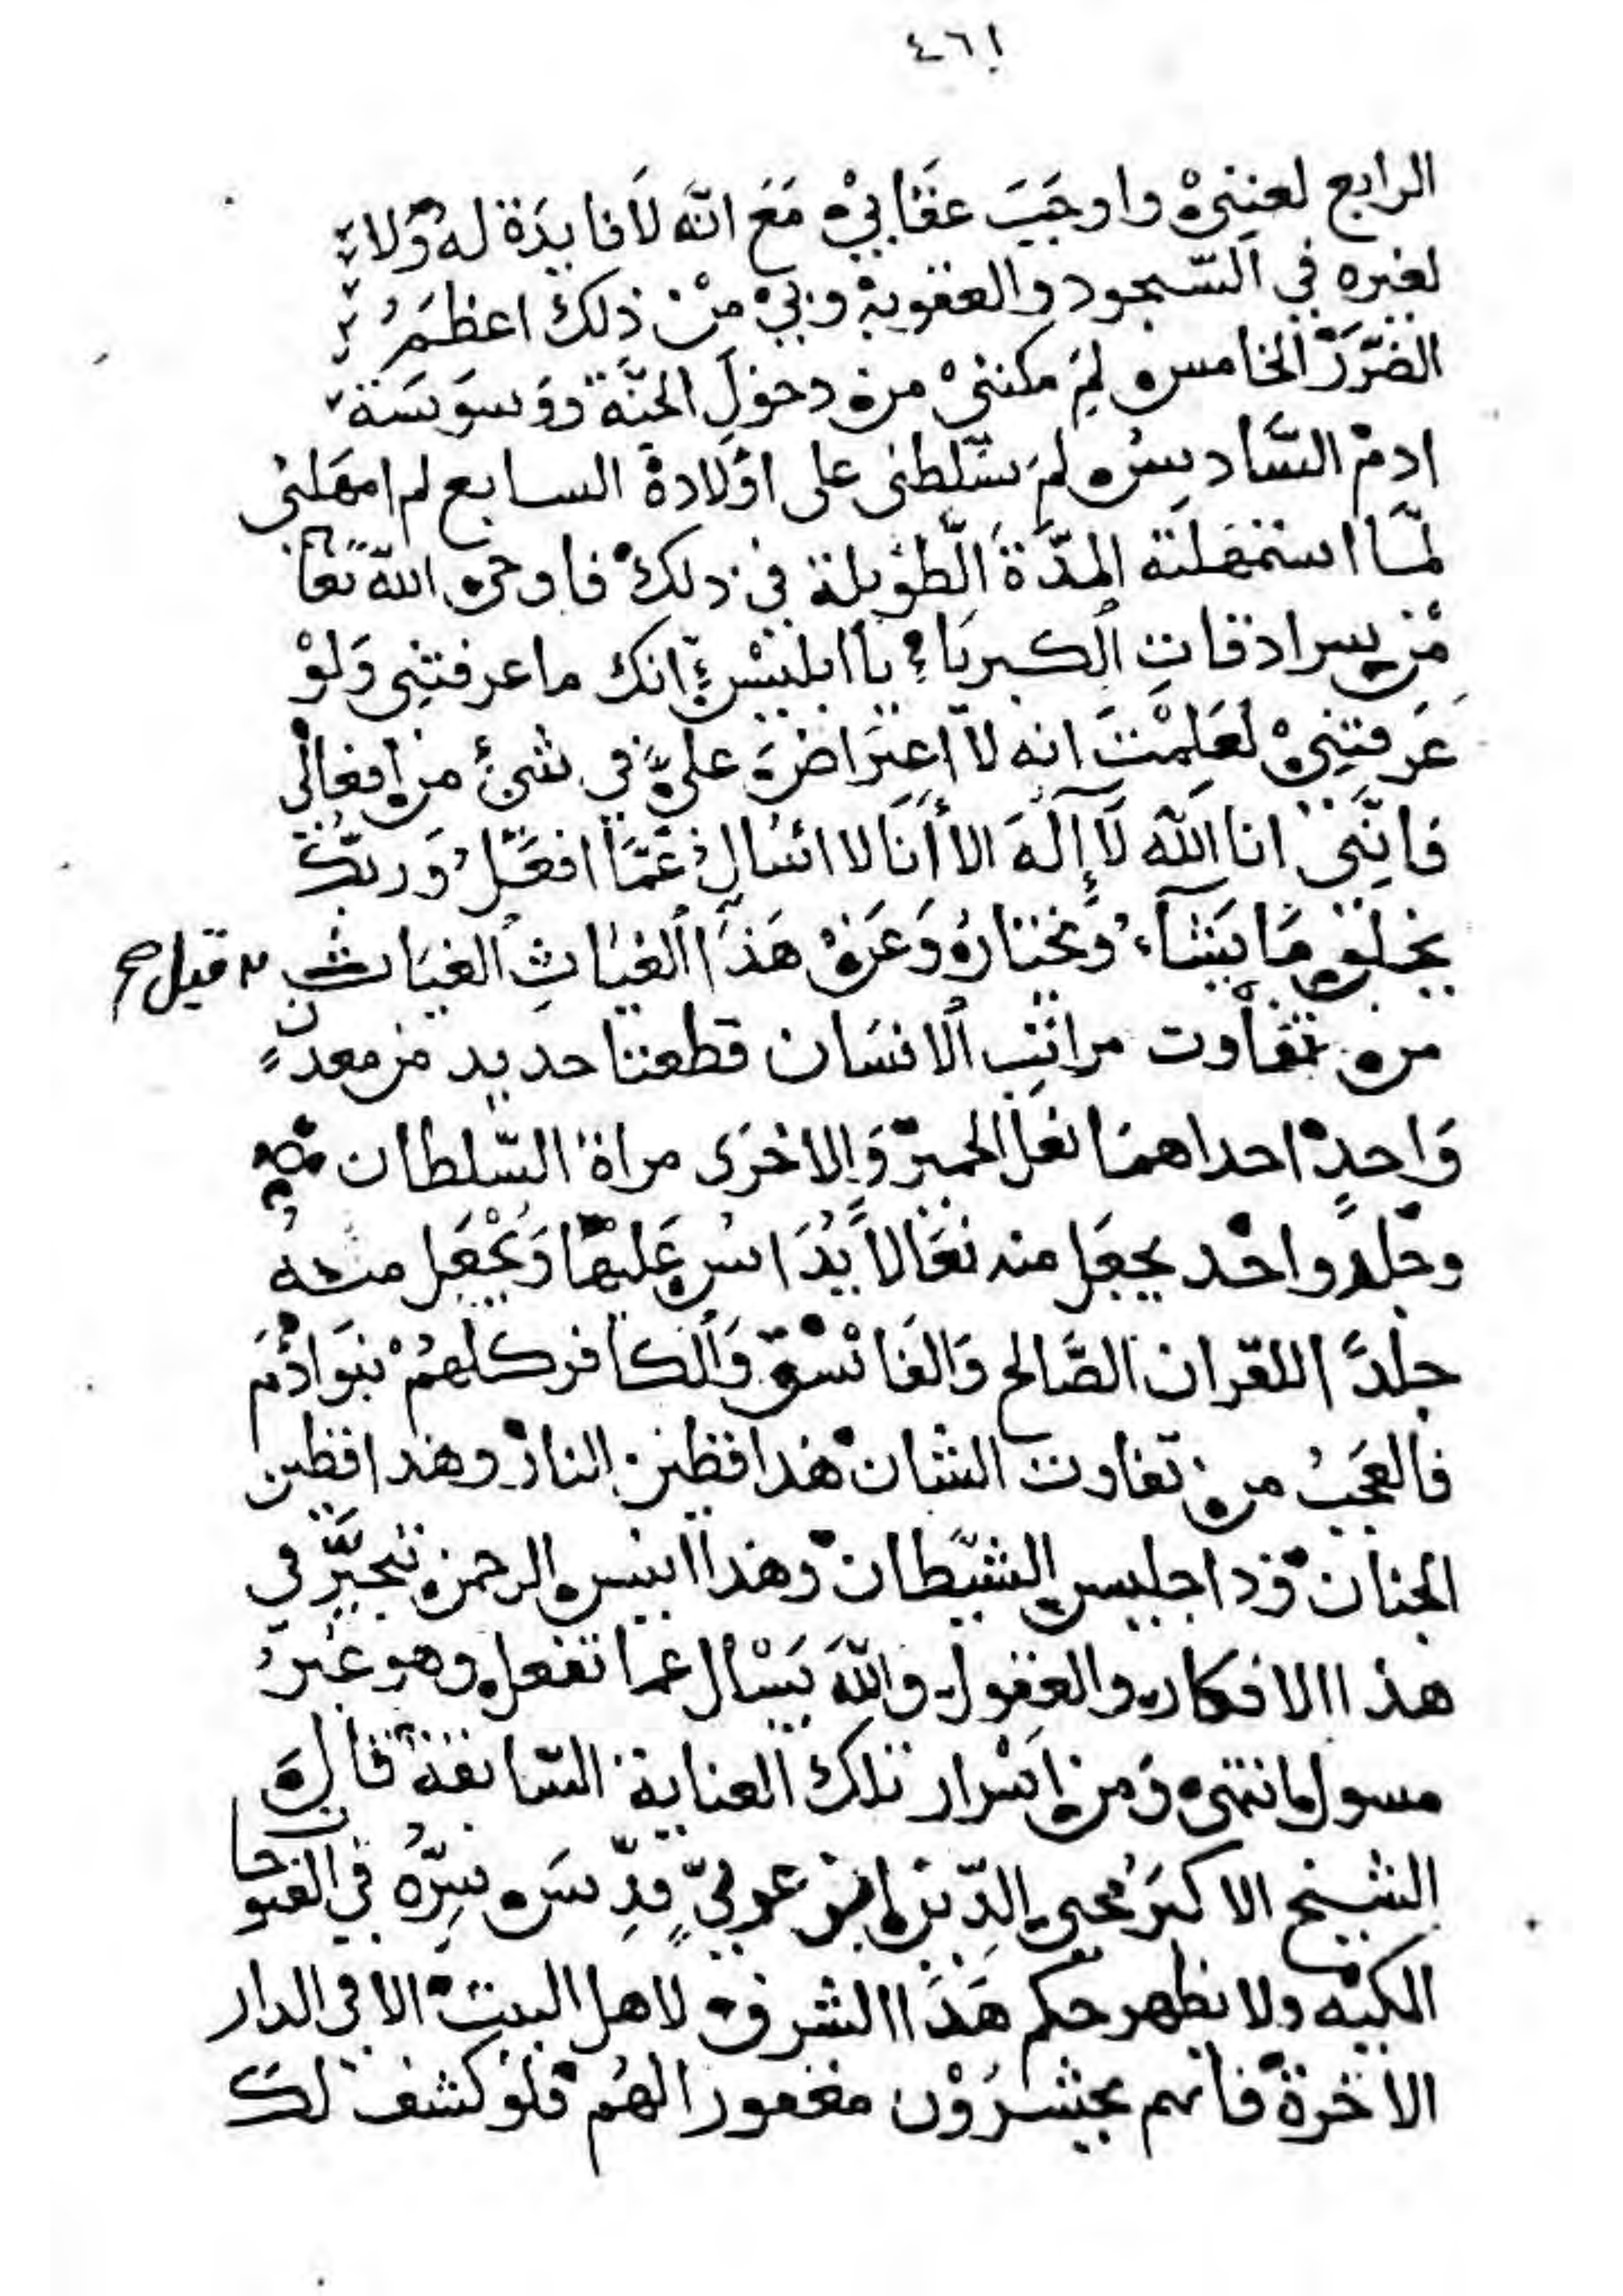 ٤٦١
الرابع لعننى واوجَبَ عقابي مَعَ انّه لَا فايدَة له وَلا
لغيره في السّجود والعقوبة وبي من ذلك اعظمُ
الضّرَرْ الخامس لِمَ مكننى من دخولِ الجنّة ووسوسَة
ادمْ السّادس لِمَ سّلطنى على اوْلادهْ السابع لم امهَلنى
لمّا استمهلته المدّةَ الطّويلة فى ذلك فاوحى اللّه تعا
من سرادقاتِ الكبريَاء يا ابليسْ انك ما عرفتنى وَلوْ
عَرفتنِىْ لَعَلِمْتَ انه لا اعتراضَ عليّ في شئ من افعالى
فانّنى انا اللّه لَا إلَهَ الا أنَا لا اسْالُ عَمّا افعَلُ وَربّك
يخلق مَا يَشَآءُ ويختارُ وَعَن هَذا الغيَاثِ الغيَاث
قيل صح
من تفاوت مراتب الانسَان قطعتا حديد من معدنٍ
وَاحدٍ احداهمَا نعل الحميرْ وَالاخرَى مراة السّلطان
وجلد واحد يجعَل منه نعَالا يُدَاس عَليهَا وَيُجْعَل منه
جلدًا للقران الصَّالح وَالفَاسْق وَالكافر كلهمُ بنوَادَمَ
فالعَجَبُ من تفاوت الشان هذا قطين النار وهذا قطين
الجنان وذا جليس الشيّطان وهذا انيس الرحمن تتحيَّر في
هذا الافكار والعقول واللّه يَسْال عما تفعل وهو غيرُ
مسول انتهى وَمن اسْرار تلك العناية السّابقة قالَ
الشيخ الاكبَر محيى الدّين ابن عربيّ قدِّسَ سِرّهُ في الفتوحا
المكيه ولا يظهر حكم هَذا الشرف لاهل البيت الا في الدار
الاخرة فانهم يحشرُوْن مغفورا لهُم فلو كشف لك